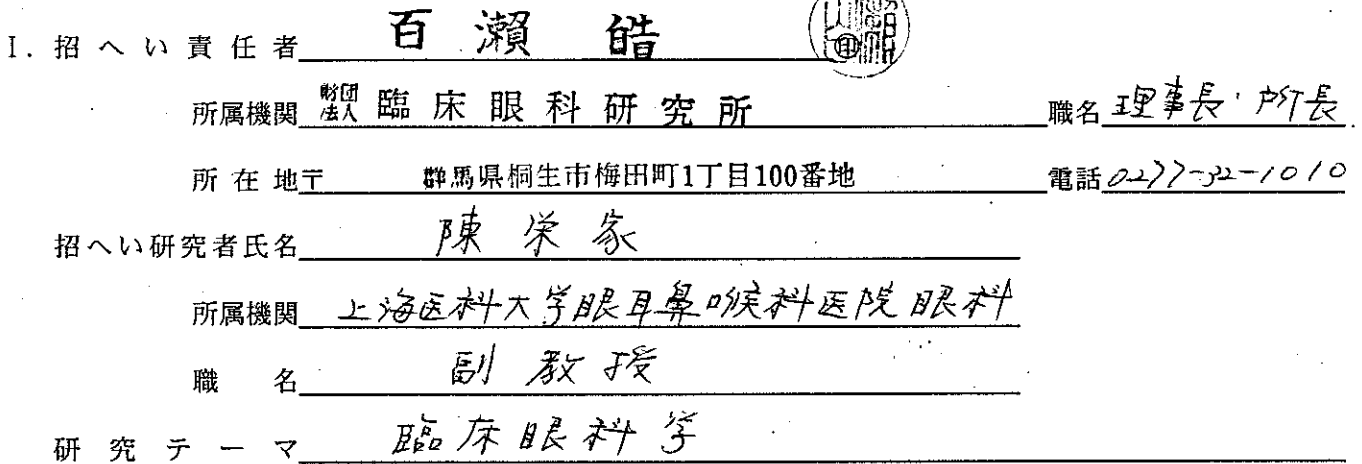 I. 招へい責任者 百瀬皓 ㊞
所属機関 財団法人 臨床眼科研究所 職名 理事長・所長
所在地〒 群馬県桐生市梅田町1丁目100番地 電話 0277-32-1010
招へい研究者氏名 陳栄家
所属機関 上海医科大学眼耳鼻喉科医院眼科
職名 副教授
研究テーマ 臨床眼科学